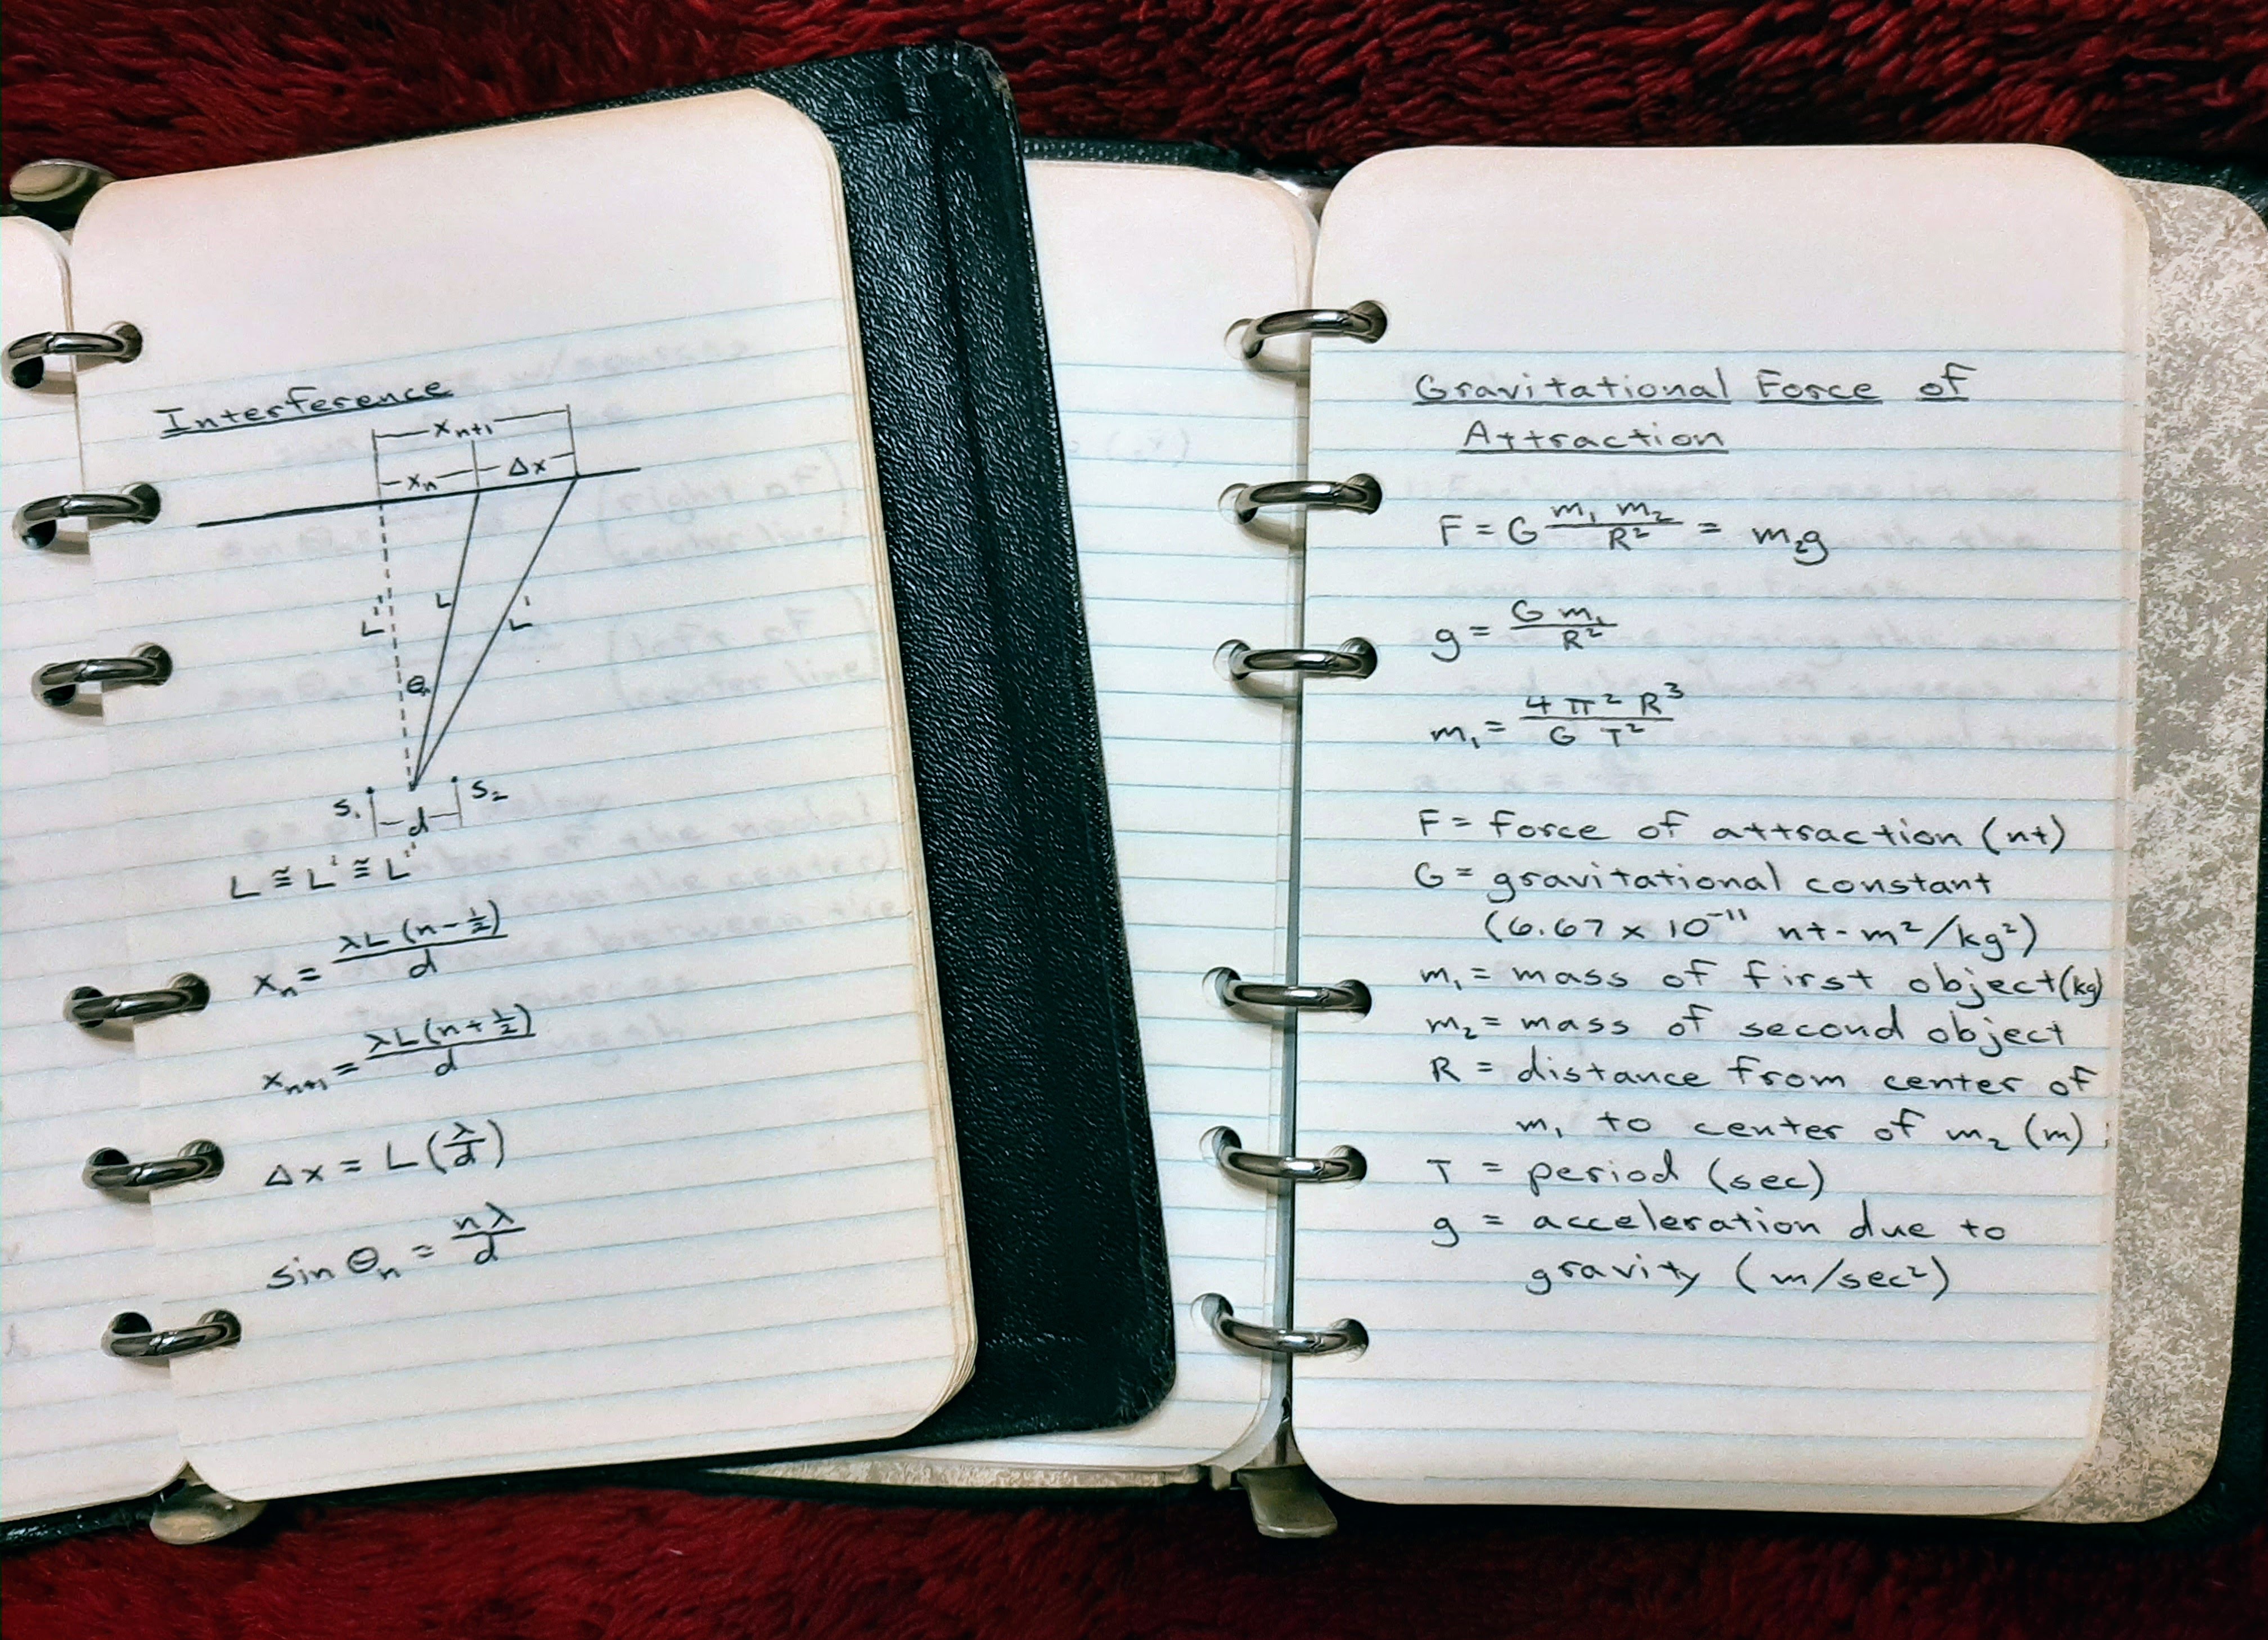 Interference
xₙ₊₁
xₙ Δx
L'' L L'
θₙ
S₁ d S₂
L ≅ L' ≅ L''
xₙ = λL(n-½)/d
xₙ₊₁ = λL(n+½)/d
Δx = L(λ/d)
sin θₙ = nλ/d
Gravitational Force of
Attraction
F = G m₁ m₂/R² = m₂g
g = G m₁/R²
m₁ = 4 π² R³/G T²
F = force of attraction (nt)
G = gravitational constant
(6.67 x 10⁻¹¹ nt-m²/kg²)
m₁ = mass of first object (kg)
m₂ = mass of second object
R = distance from center of
m₁ to center of m₂ (m)
T = period (sec)
g = acceleration due to
gravity (m/sec²)